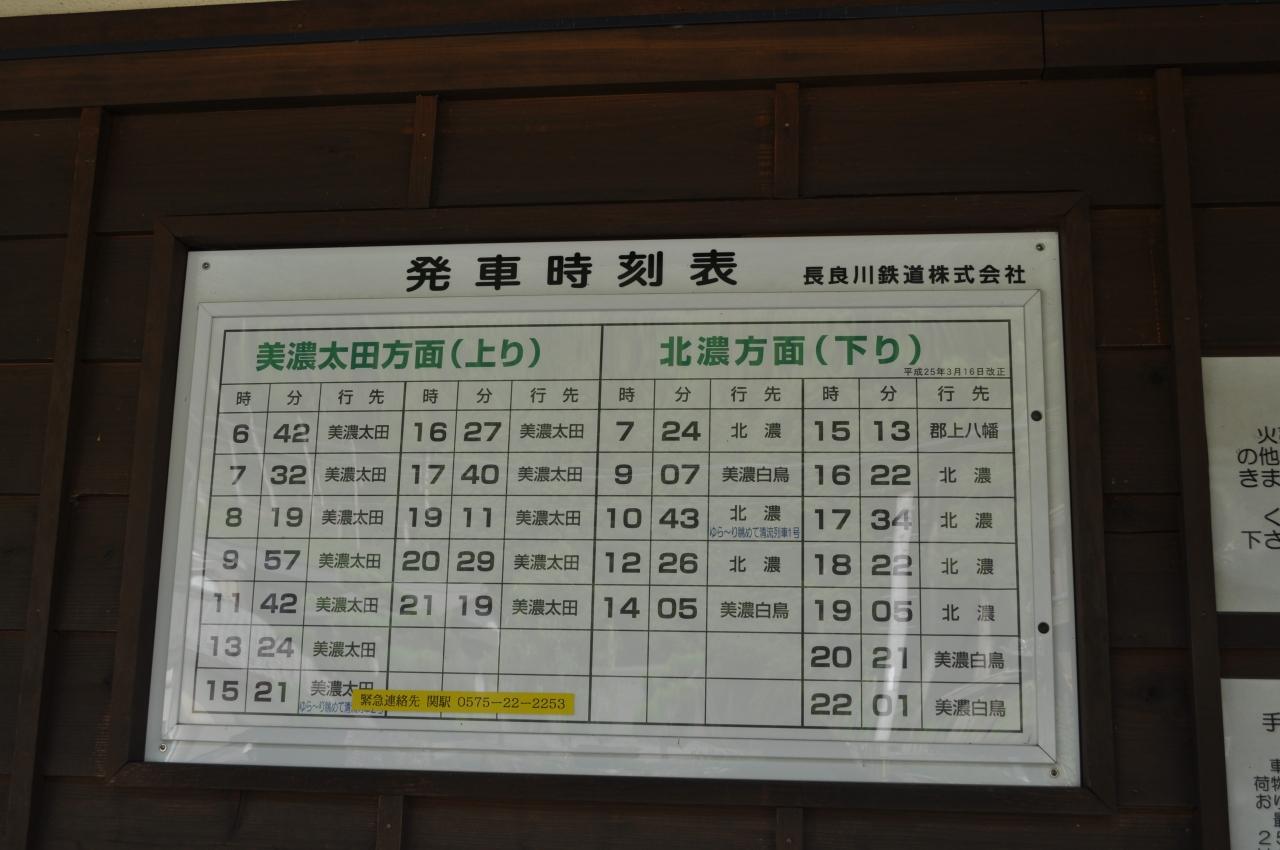 発車時刻表
長良川鉄道株式会社
美濃太田方面(上り)
北濃方面(下り)
平成25年3月16日改正
時 分 行先 時 分 行先 時 分 行先 時 分 行先
6 42 美濃太田 16 27 美濃太田 7 24 北濃 15 13 郡上八幡
7 32 美濃太田 17 40 美濃太田 9 07 美濃白鳥 16 22 北濃
8 19 美濃太田 19 11 美濃太田 10 43 北濃 17 34 北濃
ゆら〜り眺めて清流列車1号
9 57 美濃太田 20 29 美濃太田 12 26 北濃 18 22 北濃
11 42 美濃太田 21 19 美濃太田 14 05 美濃白鳥 19 05 北濃
13 24 美濃太田 20 21 美濃白鳥
15 21 美濃太田 22 01 美濃白鳥
ゆら〜り眺めて清流
緊急連絡先 関駅 0575-22-2253
火
の他
きま
く
下さ
手
車
荷物
おり
最
25